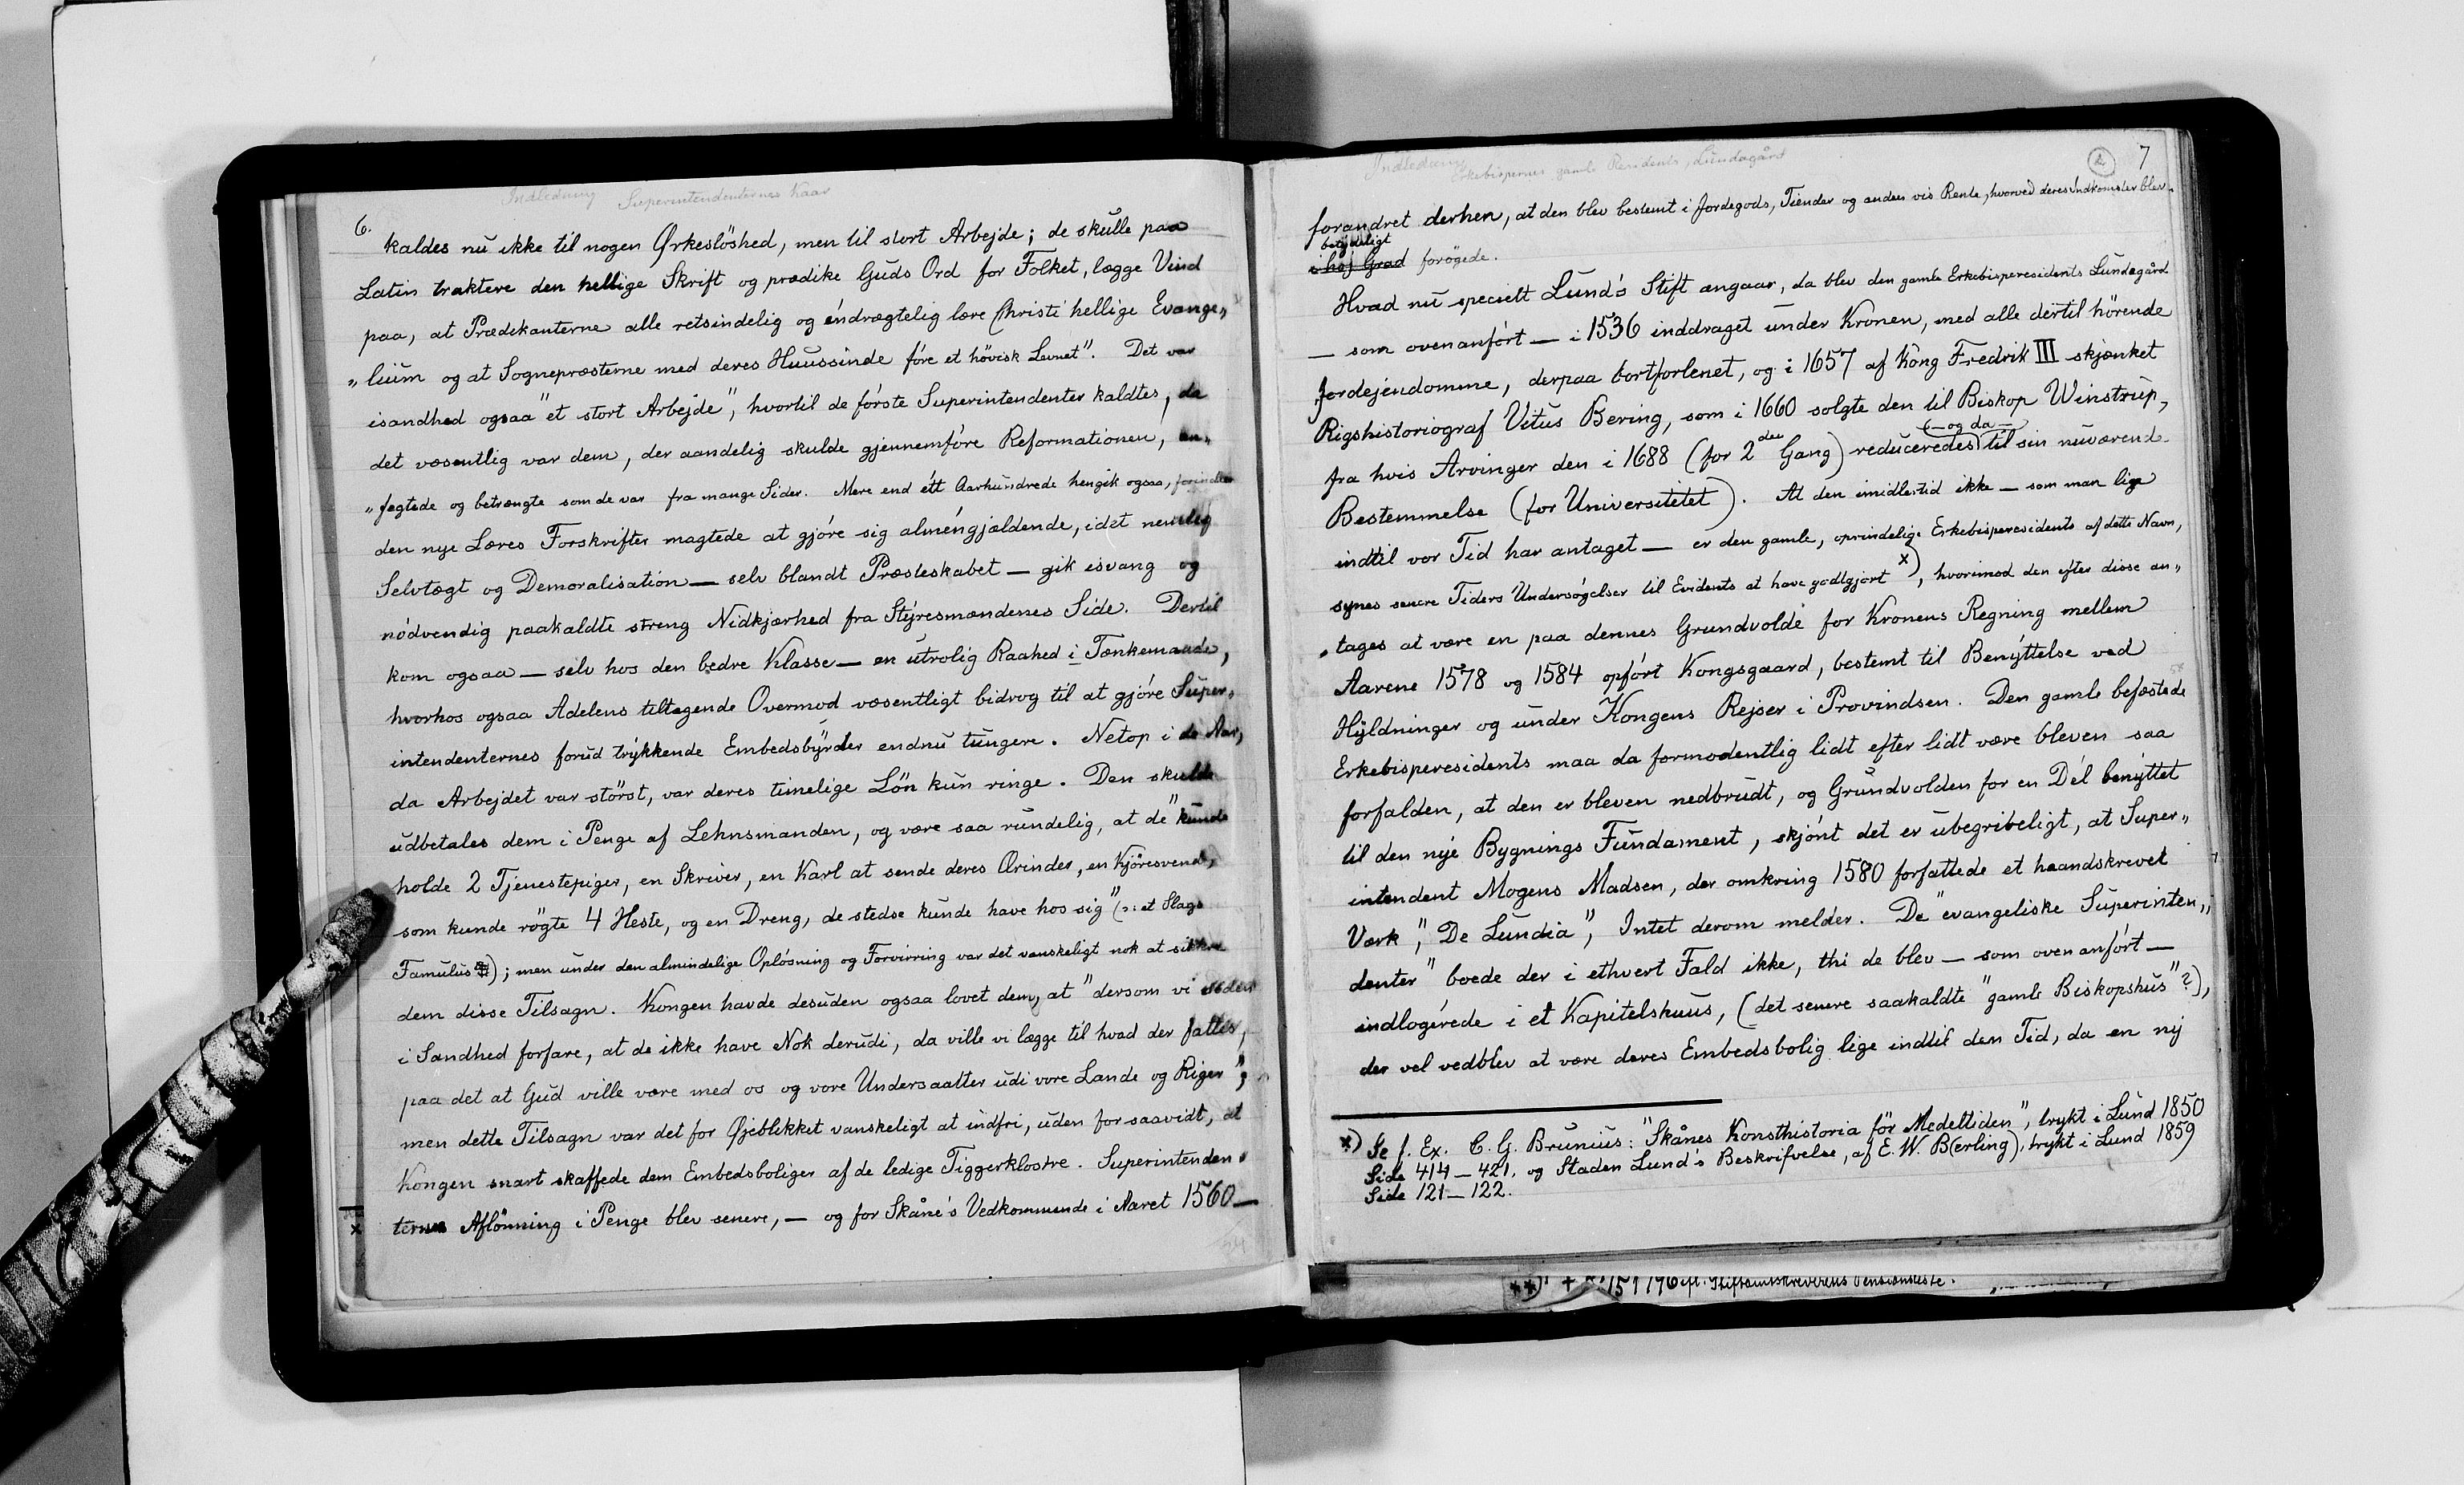 Indledning Superintendenternes Kaar
6.
kaldes nu ikke til nogen Ørkesløshed, men til stort Arbejde; de skulle paa
Latin traktere den hellige Skrift og prædike Guds Ord for Folket, lægge Vind
paa, at Prædikanterne alle retsindelig og éndrægtelig lære Christi hellige Evange„
„lium og at Sognepræsterne med deres Huussinde føre et hövisk Levnet". Det var
isandhed ogsaa "et stort Arbejde", hvortil de første Superintendenter kaldtes, da
det væsentlig var dem, der aandelig skulde gjennemføre Reformationen, an„
„fegtede og betrængte som de var fra mange Sider. Mere end étt Aarhundrede hengik ogsaa, forinden
den nye Læres Forskrifter magtede at gjøre sig alméngjældende, idet nemlig
Selvtægt og Demoralisation — selv blandt Præsteskabet — gik isvang og
nödvendig paakaldte streng Nidkjærhed fra Styresmændenes Side. Dertil
kom ogsaa — selv hos den bedre Klasse — en utrolig Raahed i Tænkemaade,
hvorhos ogsaa Adelens tiltagende Overmod væsentligt bidrog til at gjøre Super„
intendenternes forud trykkende Embedsbyrder endnu tungere. Netop i de Aar,
da Arbejdet var störst, var deres timelige Lön kun ringe. Den skulde
udbetales dem i Penge af Lehnsmanden, og være saa rundelig, at de "kunde
holde 2 Tjenestepiger, en Skriver, en Karl at sende deres Ærinder, en Kjøresvend,
som kunde rögte 4 Heste, og en Dreng, de stedse kunde have hos sig" (ɔ: et Slags
Famulus); men under den almindelige Opløsning og Forvirring var det vanskeligt nok at sikkre
dem disse Tilsagn. Kongen havde desuden ogsaa lovet dem, at "dersom vi siden
i Sandhed forfare, at de ikke have Nok derudi, da ville vi lægge til hvad der fattes,
paa det at Gud ville være med os og vore Undersaatter udi vore Lande og Riger";
men dette Tilsagn var det for Øjeblikket vanskeligt at indfri, uden for saavidt, at
Kongen snart skaffede dem Embedsboliger af de ledige Tiggerklostre. Superintenden„
x ternes Aflönning i Penge blev senere, — og for Skåne's Vedkommende i Aaret 1560 —
54
Indledning Erkebispernes gamle Residents, Lundagård
2 7
forandret derhen, at den blev bestemt i Jordegods, Tiender og anden vis Rente, hvorved deres Indkomster blev
betydeligt
i höj Grad forögede.
Hvad nu specielt Lund's Stift angaar, da blev den gamle Erkebisperesidents Lundagård
— som ovenanført — i 1536 inddraget under Kronen, med alle dertil hörende
Jordejendomme, derpaa bortforlenet, og i 1657 af Kong Fredrik III skjænket
Rigshistoriograf Vitus Bering, som i 1660 solgte den til Biskop Winstrup,
— og da —
fra hvis Arvinger den i 1688 (for 2den Gang) reduceredes til sin nuværend
Bestemmelse (for Universitetet). At den imidlertid ikke — som man lige
indtil vor Tid har antaget — er den gamle, oprindelige Erkebisperesidents af dette Navn,
synes senere Tiders Undersøgelser til Evidents at have godtgjort x), hvorimod den efter disse an„
„tages at være en paa dennes Grundvolde for Kronens Regning mellem
Aarene 1578 og 1584 opført Kongsgaard, bestemt til Benyttelse ved
Hyldninger og under Kongens Rejser i Provindsen. Den gamle befæstede
Erkebisperesidents maa da formodentlig lidt efter lidt være bleven saa
forfalden, at den er bleven nedbrudt, og Grundvolden for en Dél benyttet
til den nye Bygnings Fundament, skjønt det er ubegribeligt, at Super„
intendent Mogens Madsen, der omkring 1580 forfattede et haandskrevet
Værk, "De Lundia", Intet derom melder. De "evangeliske Superinten„
denter" boede der i ethvert Fald ikke, thi de blev — som ovenanført —
indlogérede i et Kapitelshuus, (det senere saakaldte "gamle Biskopshus"?),
der vel vedblev at være deres Embedsbolig lige indtil den Tid, da en ny
x) Se f. Ex. C. G. Brunius: "Skånes Konsthistoria för Medeltiden", trykt i Lund 1850
Side 414 — 421, og Staden Lund's Beskrifvelse, af E. W. B(erling), trykt i Lund 1859
Side 121 — 122.